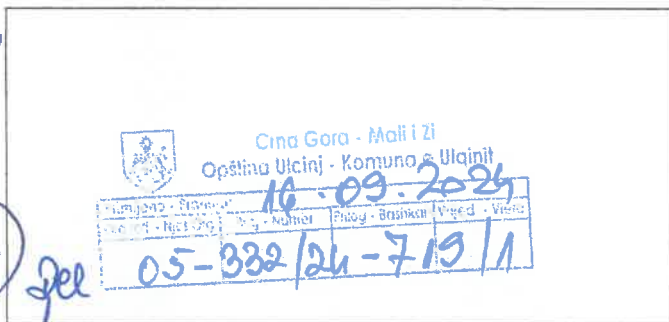 Crna Gora - Mali i Zi
Opština Ulcinj - Komuna e Ulqinit
16.09.2024
Prilog - Bashkan Vrijed - Vlera
05-332/24-719/1